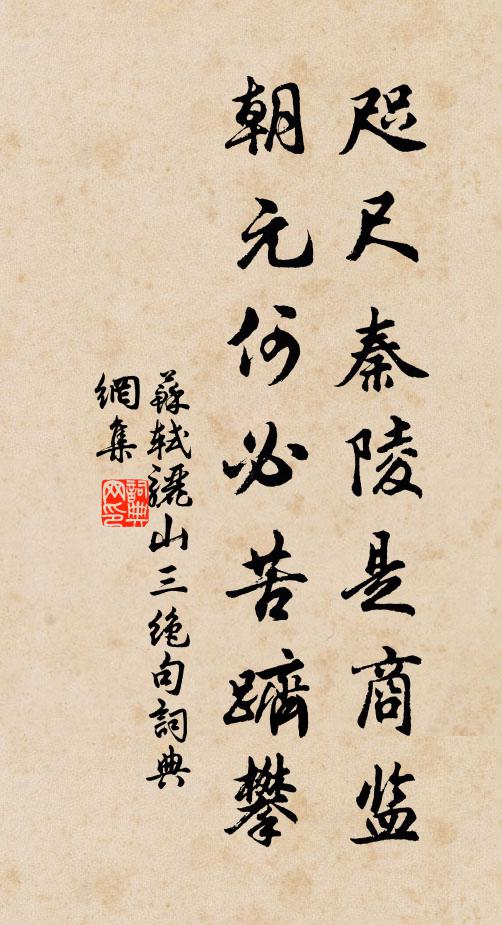 咫尺秦陵是商监
朝元何必苦躋攀
蘇軾驪山三绝句詞典
網集
詞典
网印